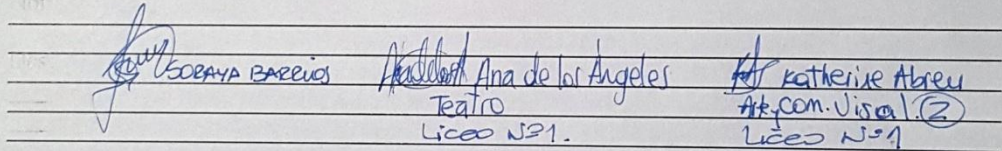 SORAYA BARRIOS
Ana de los Angeles
Teatro
Liceo Nº1.
Katherine Abreu
Art. y Com. Visual. 2
Liceo Nº1